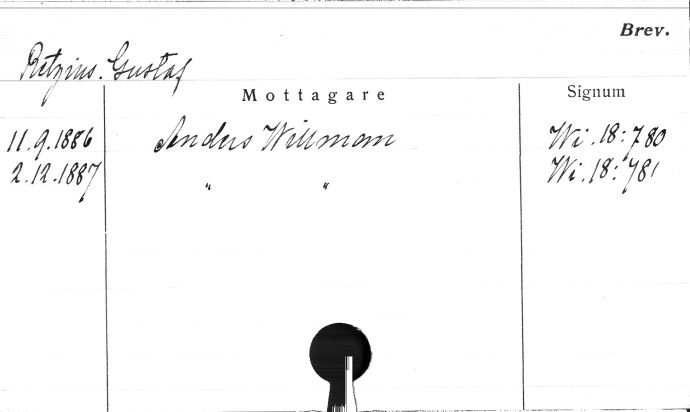 Brev.
Retzius. Gustaf
Mottagare
Signum
11.9.1886 Anders Willman Wi.18:780
2.12.1887 " " Wi.18:781